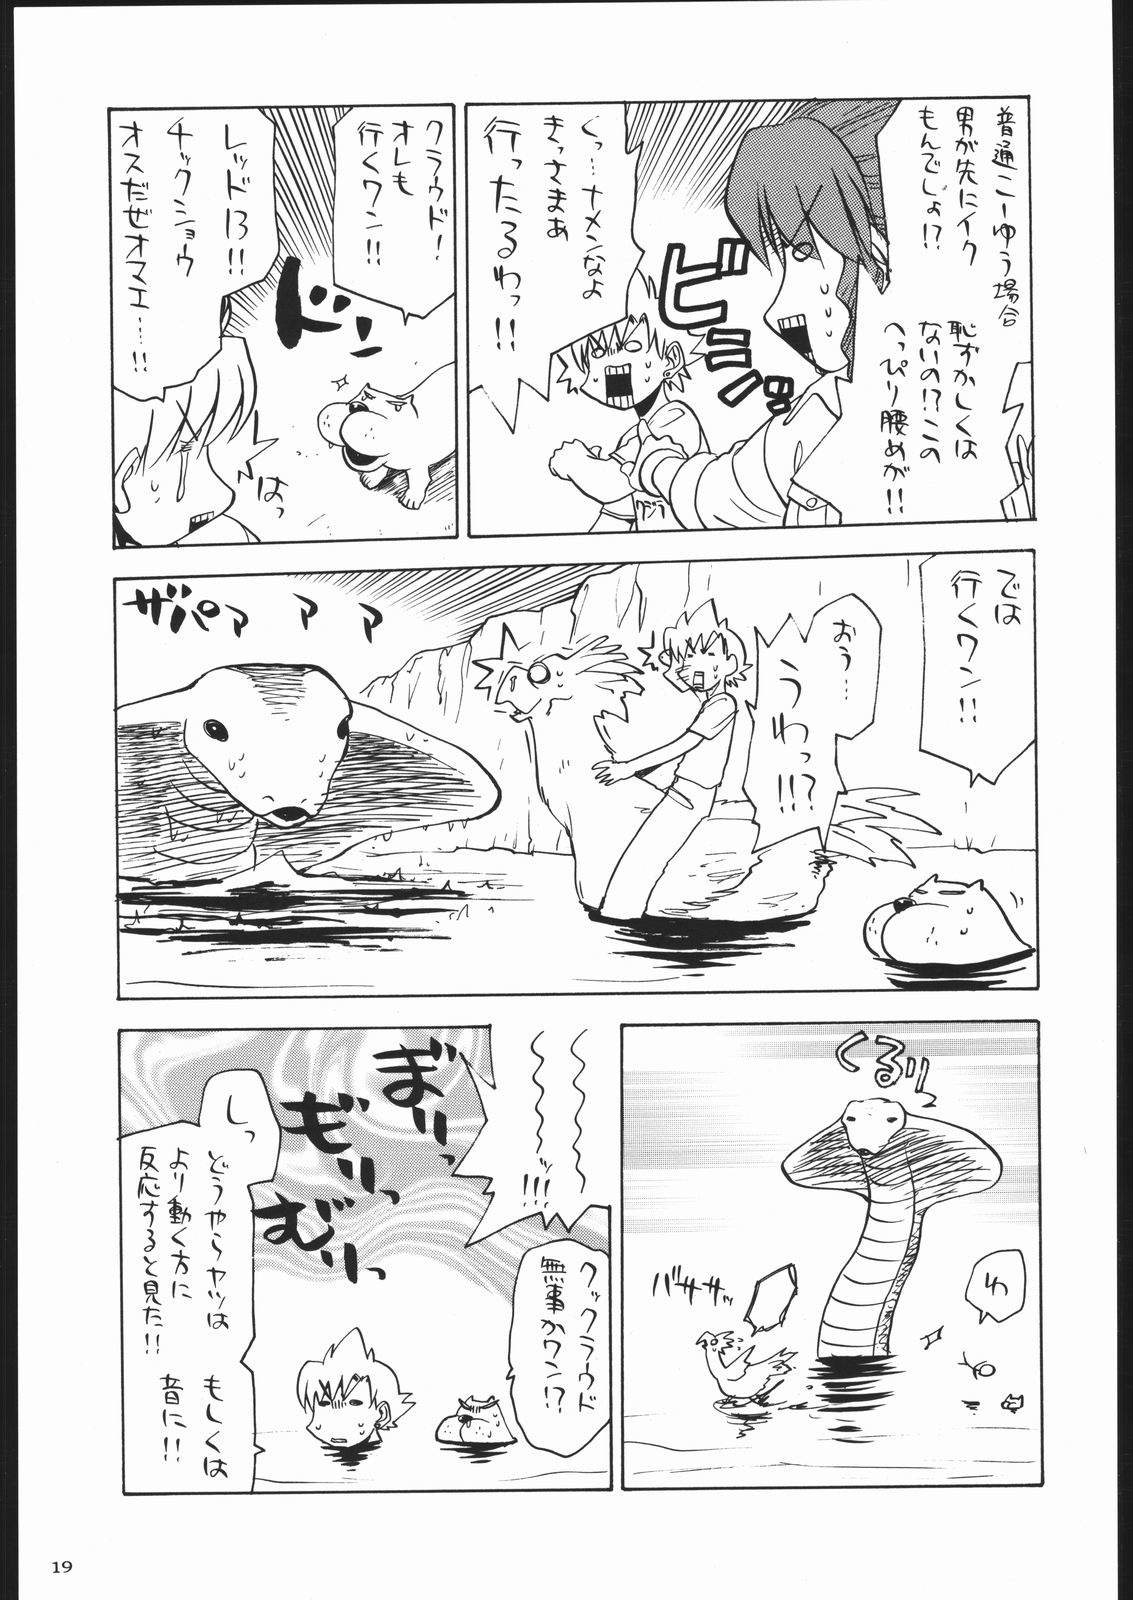 普通こーゆう場合
男が先にイク
もんでしょ!?
恥ずかしくは
ないの!?この
へっぴり腰めが!!
ビシッ
くっ…ナメンなよ
きっさまあ
行ったるわっ!!
クジラ
クラウド!
オレも
行くワン!!
ドン
レッド13!!
チックショウ
オスだぜオマエ…!!
はっ
では
行くワン!!
おぅ…
うわっ!!!?
ザパァ ァ ァ
くるりっ
わ
バササッ
クックラウド
無事かワン!?
ぎりっ
もりっ
むりっ
しっ
どうやらヤツは
より動く方に
反応すると見た!!
もしくは
音に!!
19